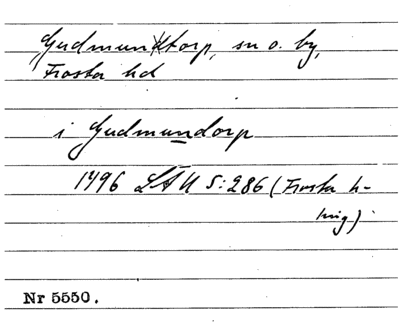 Gudmuntorp, sn o. by,
Frosta hd
i Gudmundorp
1796 LAU 5:286 (Frosta h-
ting)
Nr 5550.